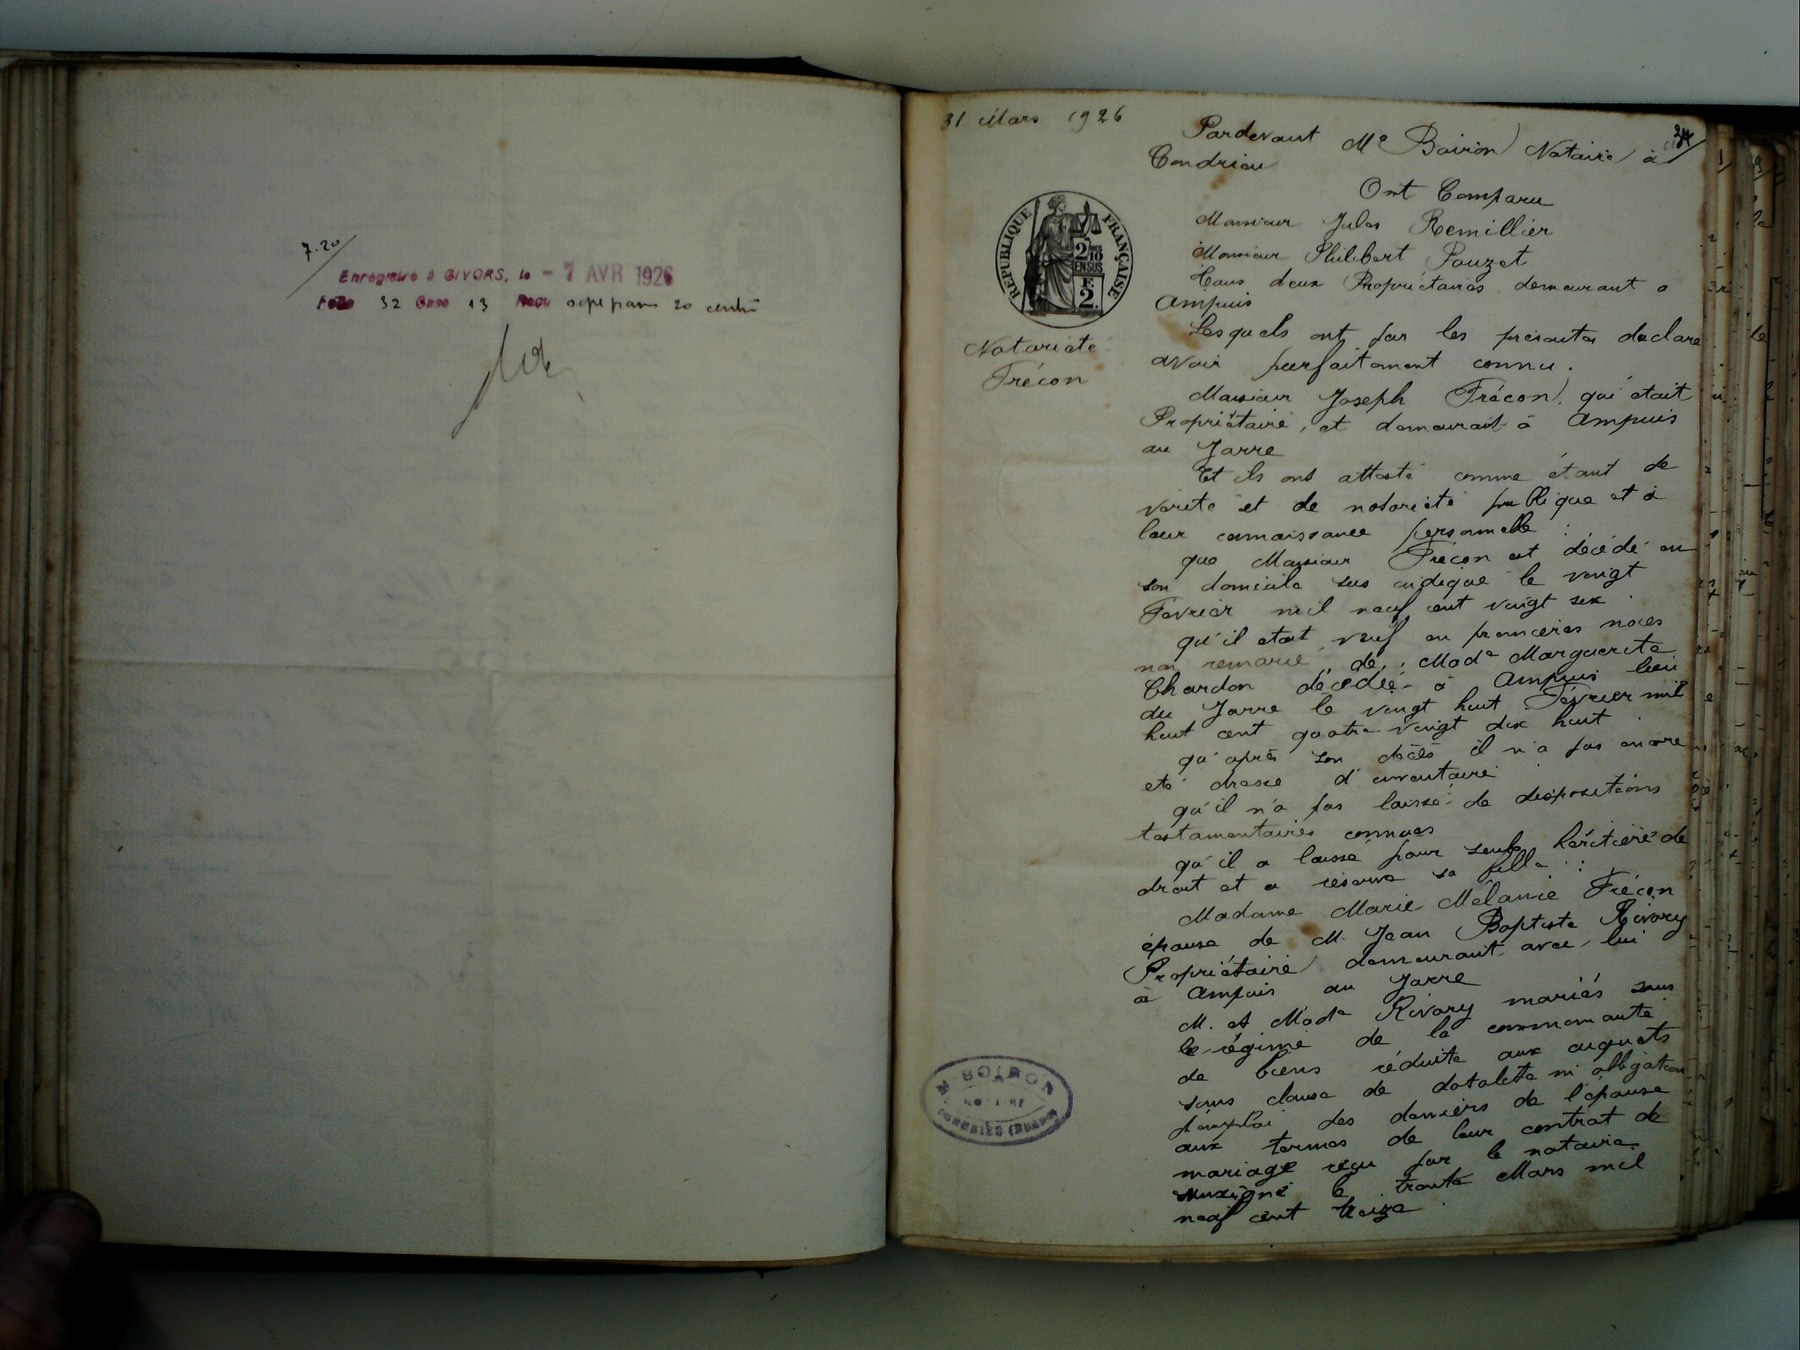 7.20
Enregistré à GIVORS, le - 7 AVR 1926
Folio 32 Case 13 Reçu sept francs 20 centi
31 Mars 1926
34
Pardevant Me Boiron Notaire à
Condrieu
Ont Comparu
Monsieur Jules Remillier
Monsieur Philibert Pouzet
Tous deux Propriétaires demeurant a
Ampuis
RÉPUBLIQUE FRANÇAISE
2/10
EN SUS
F
2.
Notariété
Frécon
Lesquels ont par les présentes declare
avoir parfaitement connu.
Monsieur Joseph Frécon, qui était
Propriétaire, et demeurait à Ampuis
au Jarre
Et ils ont attesté comme étant de
vérité et de notoriété publique et à
leur connaissance personnelle :
que Monsieur Frécon est décédé en
son domicile sus indiqué le vingt
Février mil neuf cent vingt six.
qu'il etait veuf en premières noces
non remarié, de, Made Marguerite
Chardon décédée à Ampuis lieu
du Jarre le vingt huit Février mil
huit cent quatre vingt dix huit.
qu'après son décès il n'a pas encore
eté dressé d'inventaire
qu'il n'a pas laissé de dispositions
testamentaires connues
qu'il a laissé pour seule héritière de
droit et a réserve sa fille :
Madame Marie Mélanie Frécon
épouse de M. Jean Baptiste Rivory
Propriétaire, demeurant avec lui
à Ampuis au Jarre
M. et Made Rivory mariés sous
le régime de la communauté
de biens réduite aux acquets
sans clause de dotalité ni obligation
d'emploi des deniers de l'épouse
aux termes de leur contrat de
mariage reçu par le notaire
soussigné le trente Mars mil
neuf cent treize.
M. BOIRON
NOTAIRE
CONDRIEU (RHÔNE)